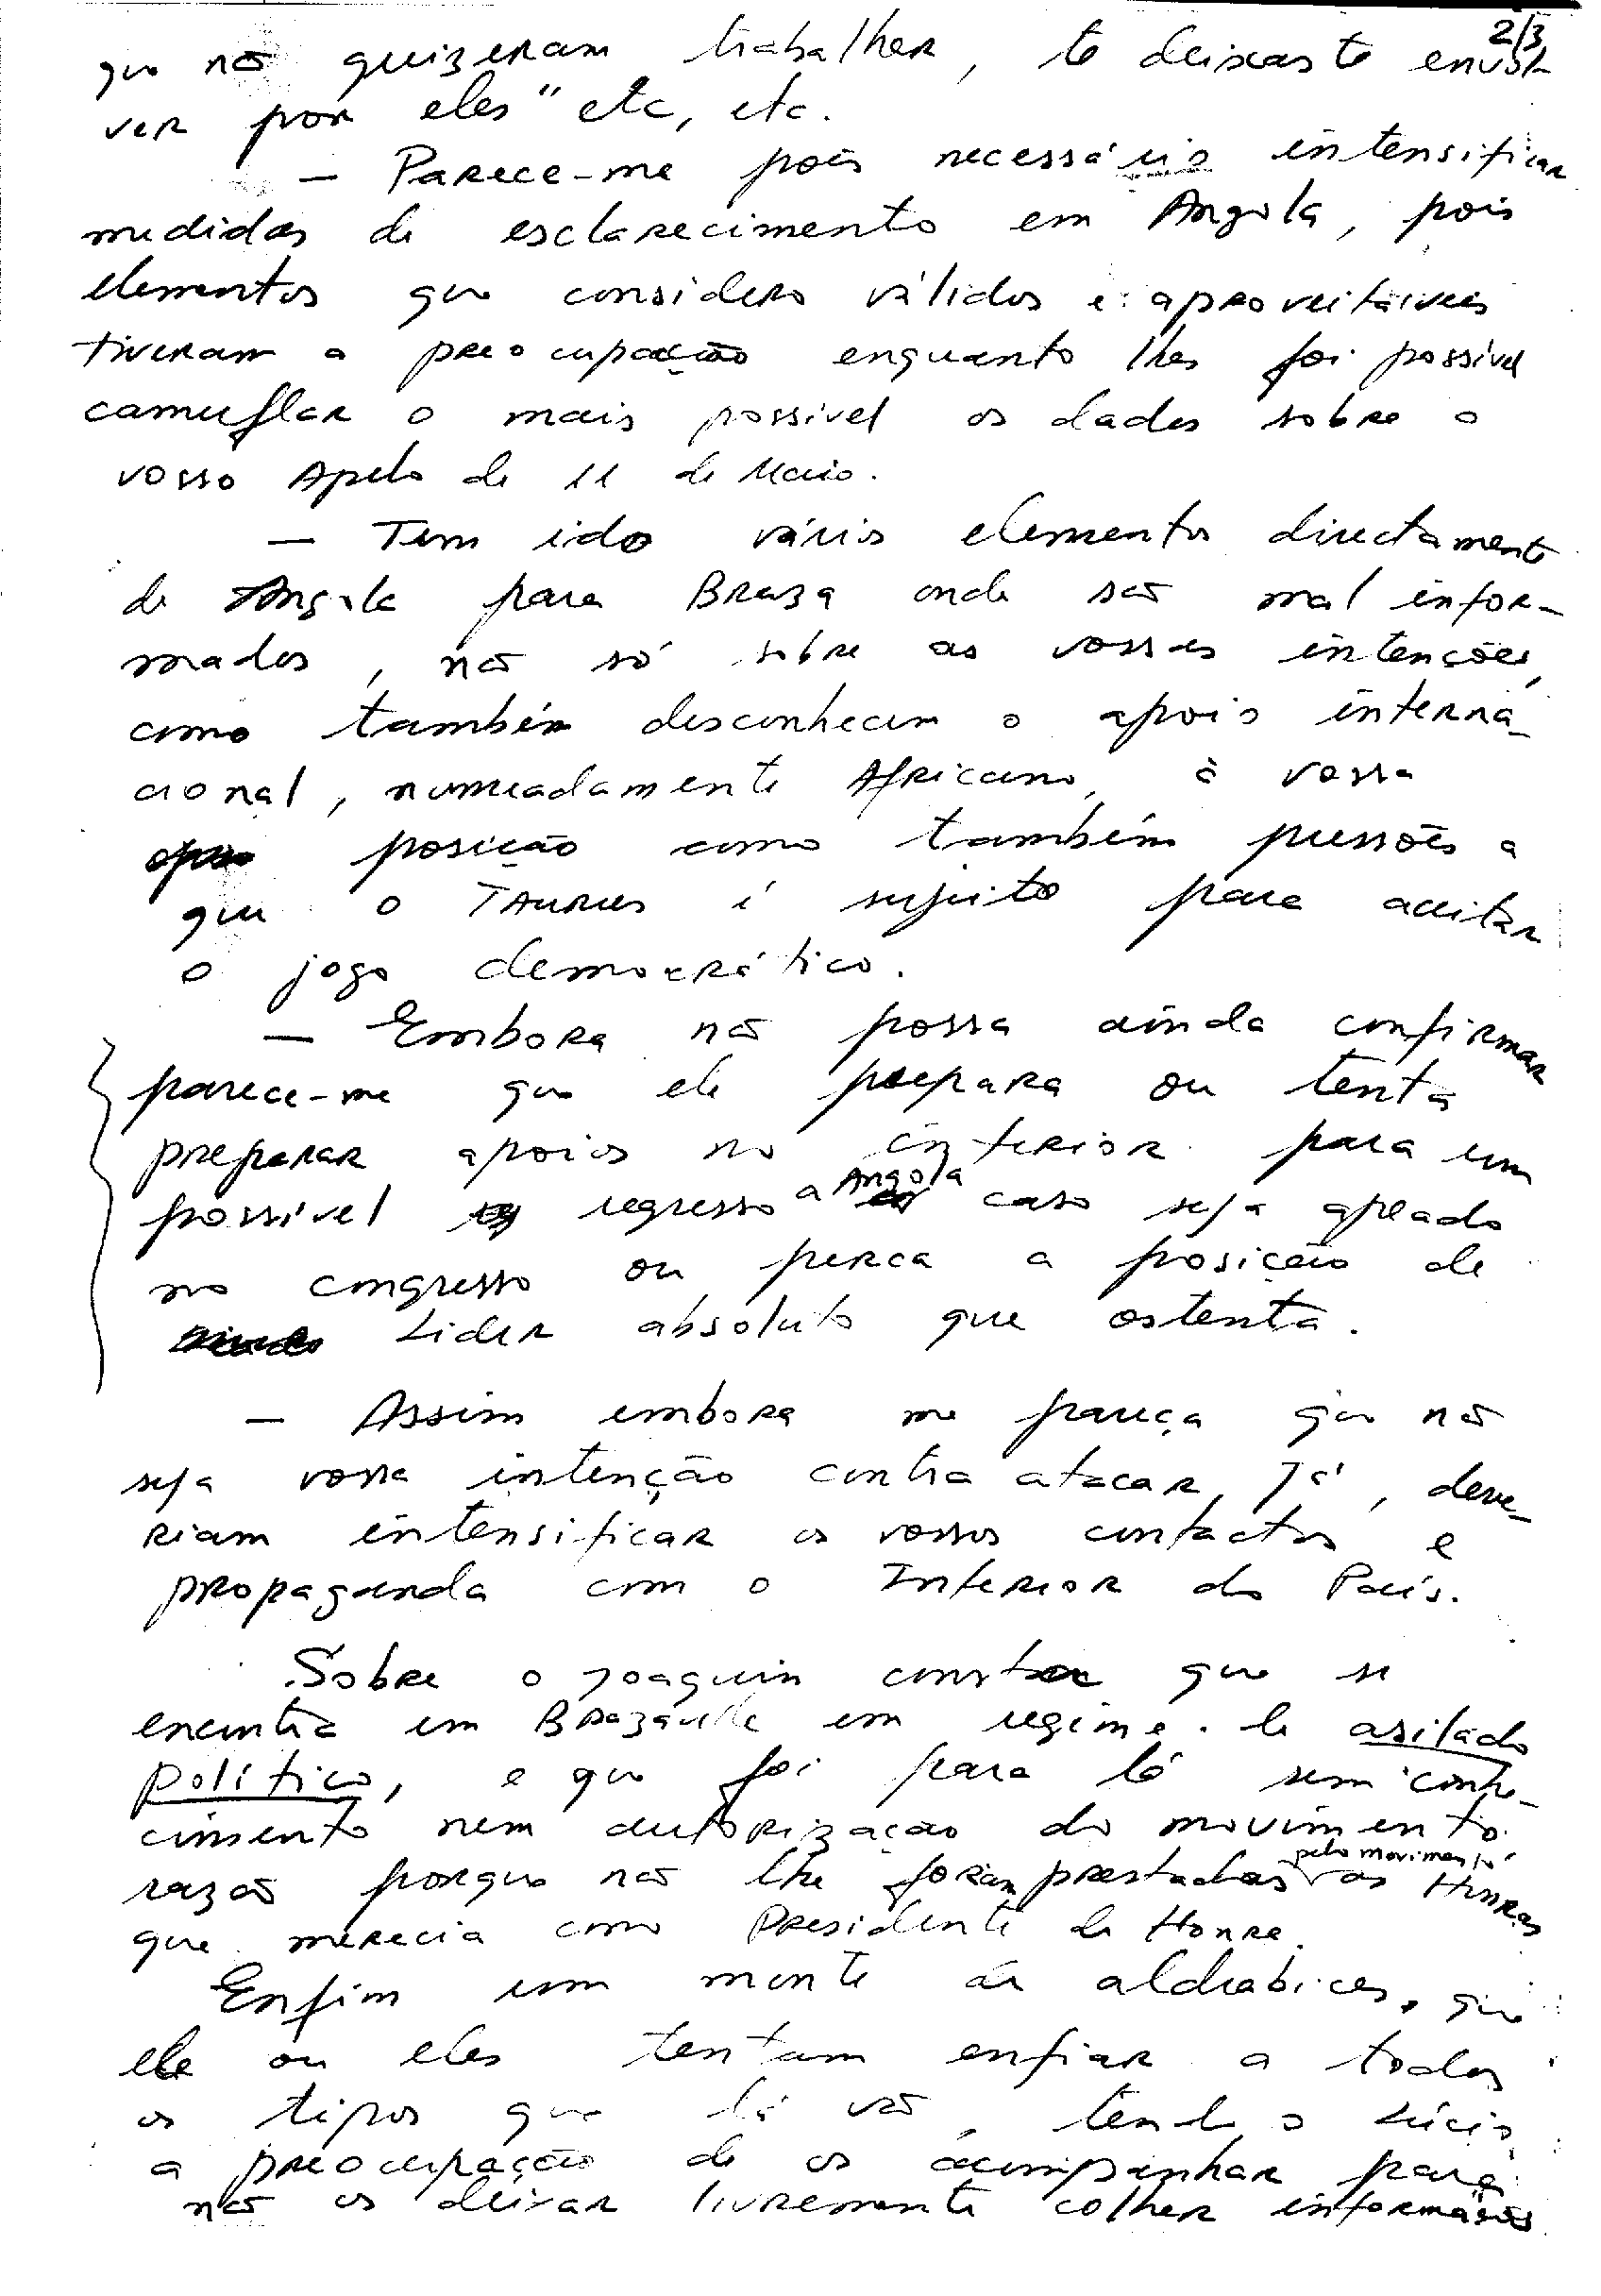 2/3
que não quizeram trabalhar, te deixaste envol-
ver por eles" etc, etc.
— Parece-me pois necessário intensificar
medidas de esclarecimento em Angola, pois
elementos que considero válidos e aproveitáveis
tiveram a preocupação enquanto lhes foi possivel
camuflar o mais possivel os dados sobre o
vosso Apelo de 11 de Maio.
— Tem ido vários elementos directamente
de Angola para Braza onde são mal infor-
mados, não só sobre as vossas intenções,
como também desconhecem o apoio interna-
cional, numeadamente Africano, à vossa
posição como também pressões a
que o Taurus é sujeito para aceitar
o jogo democrático.
— Embora não possa ainda confirmar
parece-me que ele prepara ou tenta
preparar apoios no interior para um
possível regresso a Angola caso seja apeado
no congresso ou perca a posição de
Lider absoluto que ostenta.
— Assim embora me pareça que não
seja vossa intenção contra atacar, já, deve-
riam intensificar os vossos contactos e
propaganda com o Interior do País.
Sobre o Joaquim consta que se
encontra em Brazaville em regime de asilado
político, e que foi para lá sem conhe-
cimento nem autorização do movimento
razão porque não lhe foram prestadas pelo movimento as Honras
que merecia como Presidente de Honra.
Enfim um monte de aldrabices, que
ele ou eles tentam enfiar a todos
os tipos que lá vão, tendo o Lúcio
a preocupação de os acompanhar para
não os deixar livremente colher informações